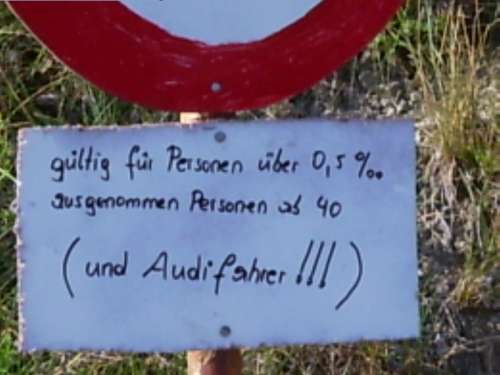 gültig für Personen über 0,5 ‰
ausgenommen Personen ab 40
(und Audifahrer!!!)